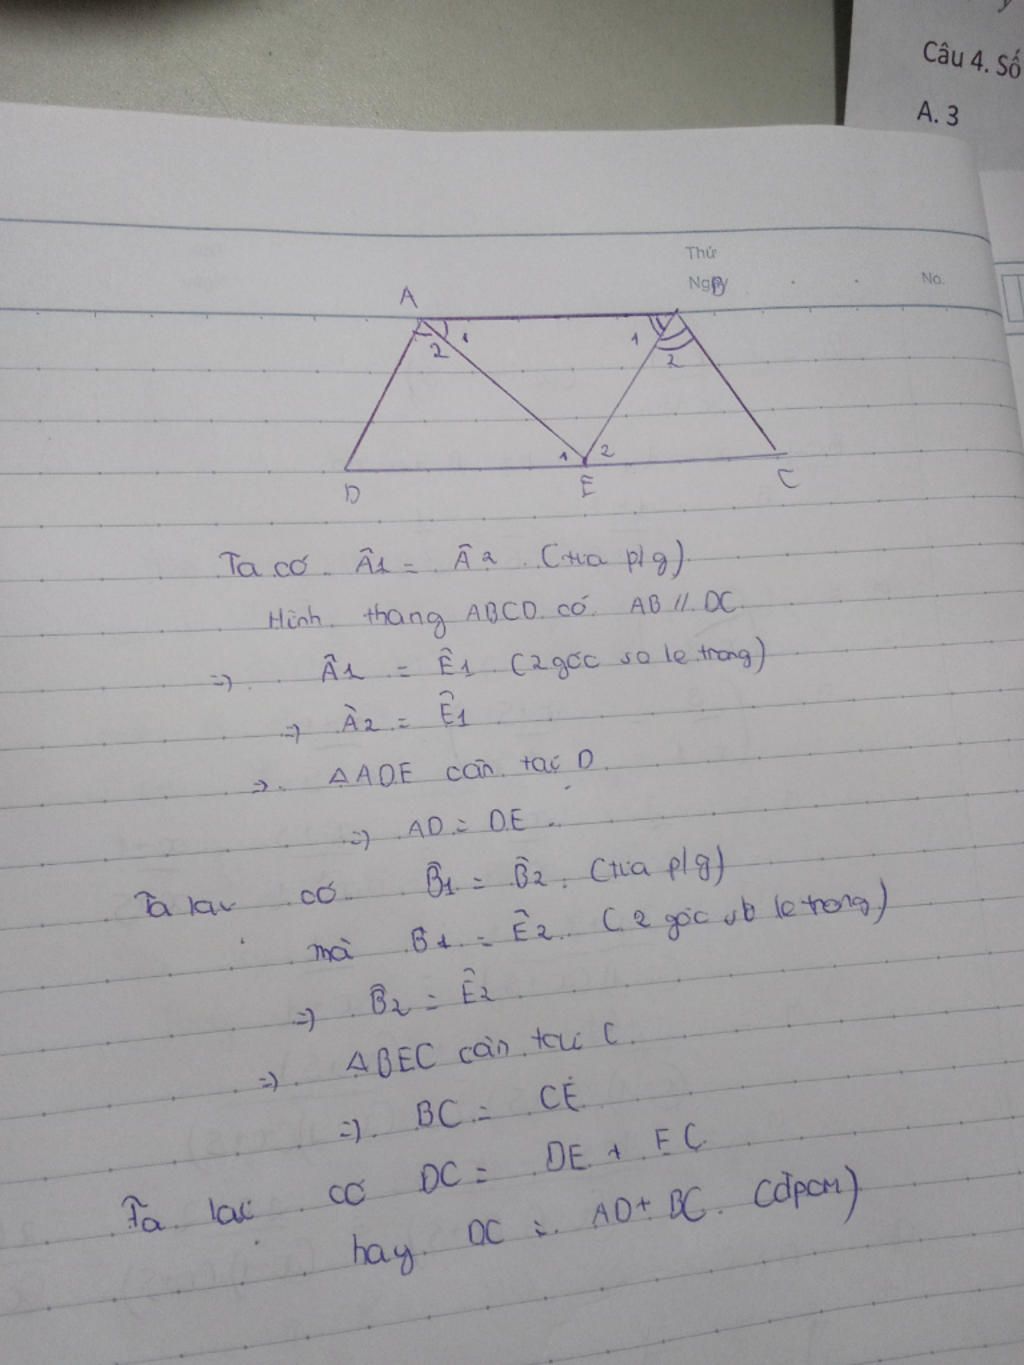 Câu 4. Số
A. 3
Thứ
Ngày
No.
A
B
1
2
1
2
1
2
D
E
C
Ta có Â1 = Â2 (tia p/g)
Hình thang ABCD có AB // DC
=> Â1 = Ê1 (2 góc so le trong)
=> Â2 = Ê1
=> △ADE cân tại D
=> AD = DE
Ta lại có B̂1 = B̂2 (tia p/g)
mà B̂1 = Ê2 (2 góc so le trong)
=> B̂2 = Ê2
=> △BEC cân tại C
=> BC = CE
Ta lại có DC = DE + EC
hay DC = AD + BC (đpcm)